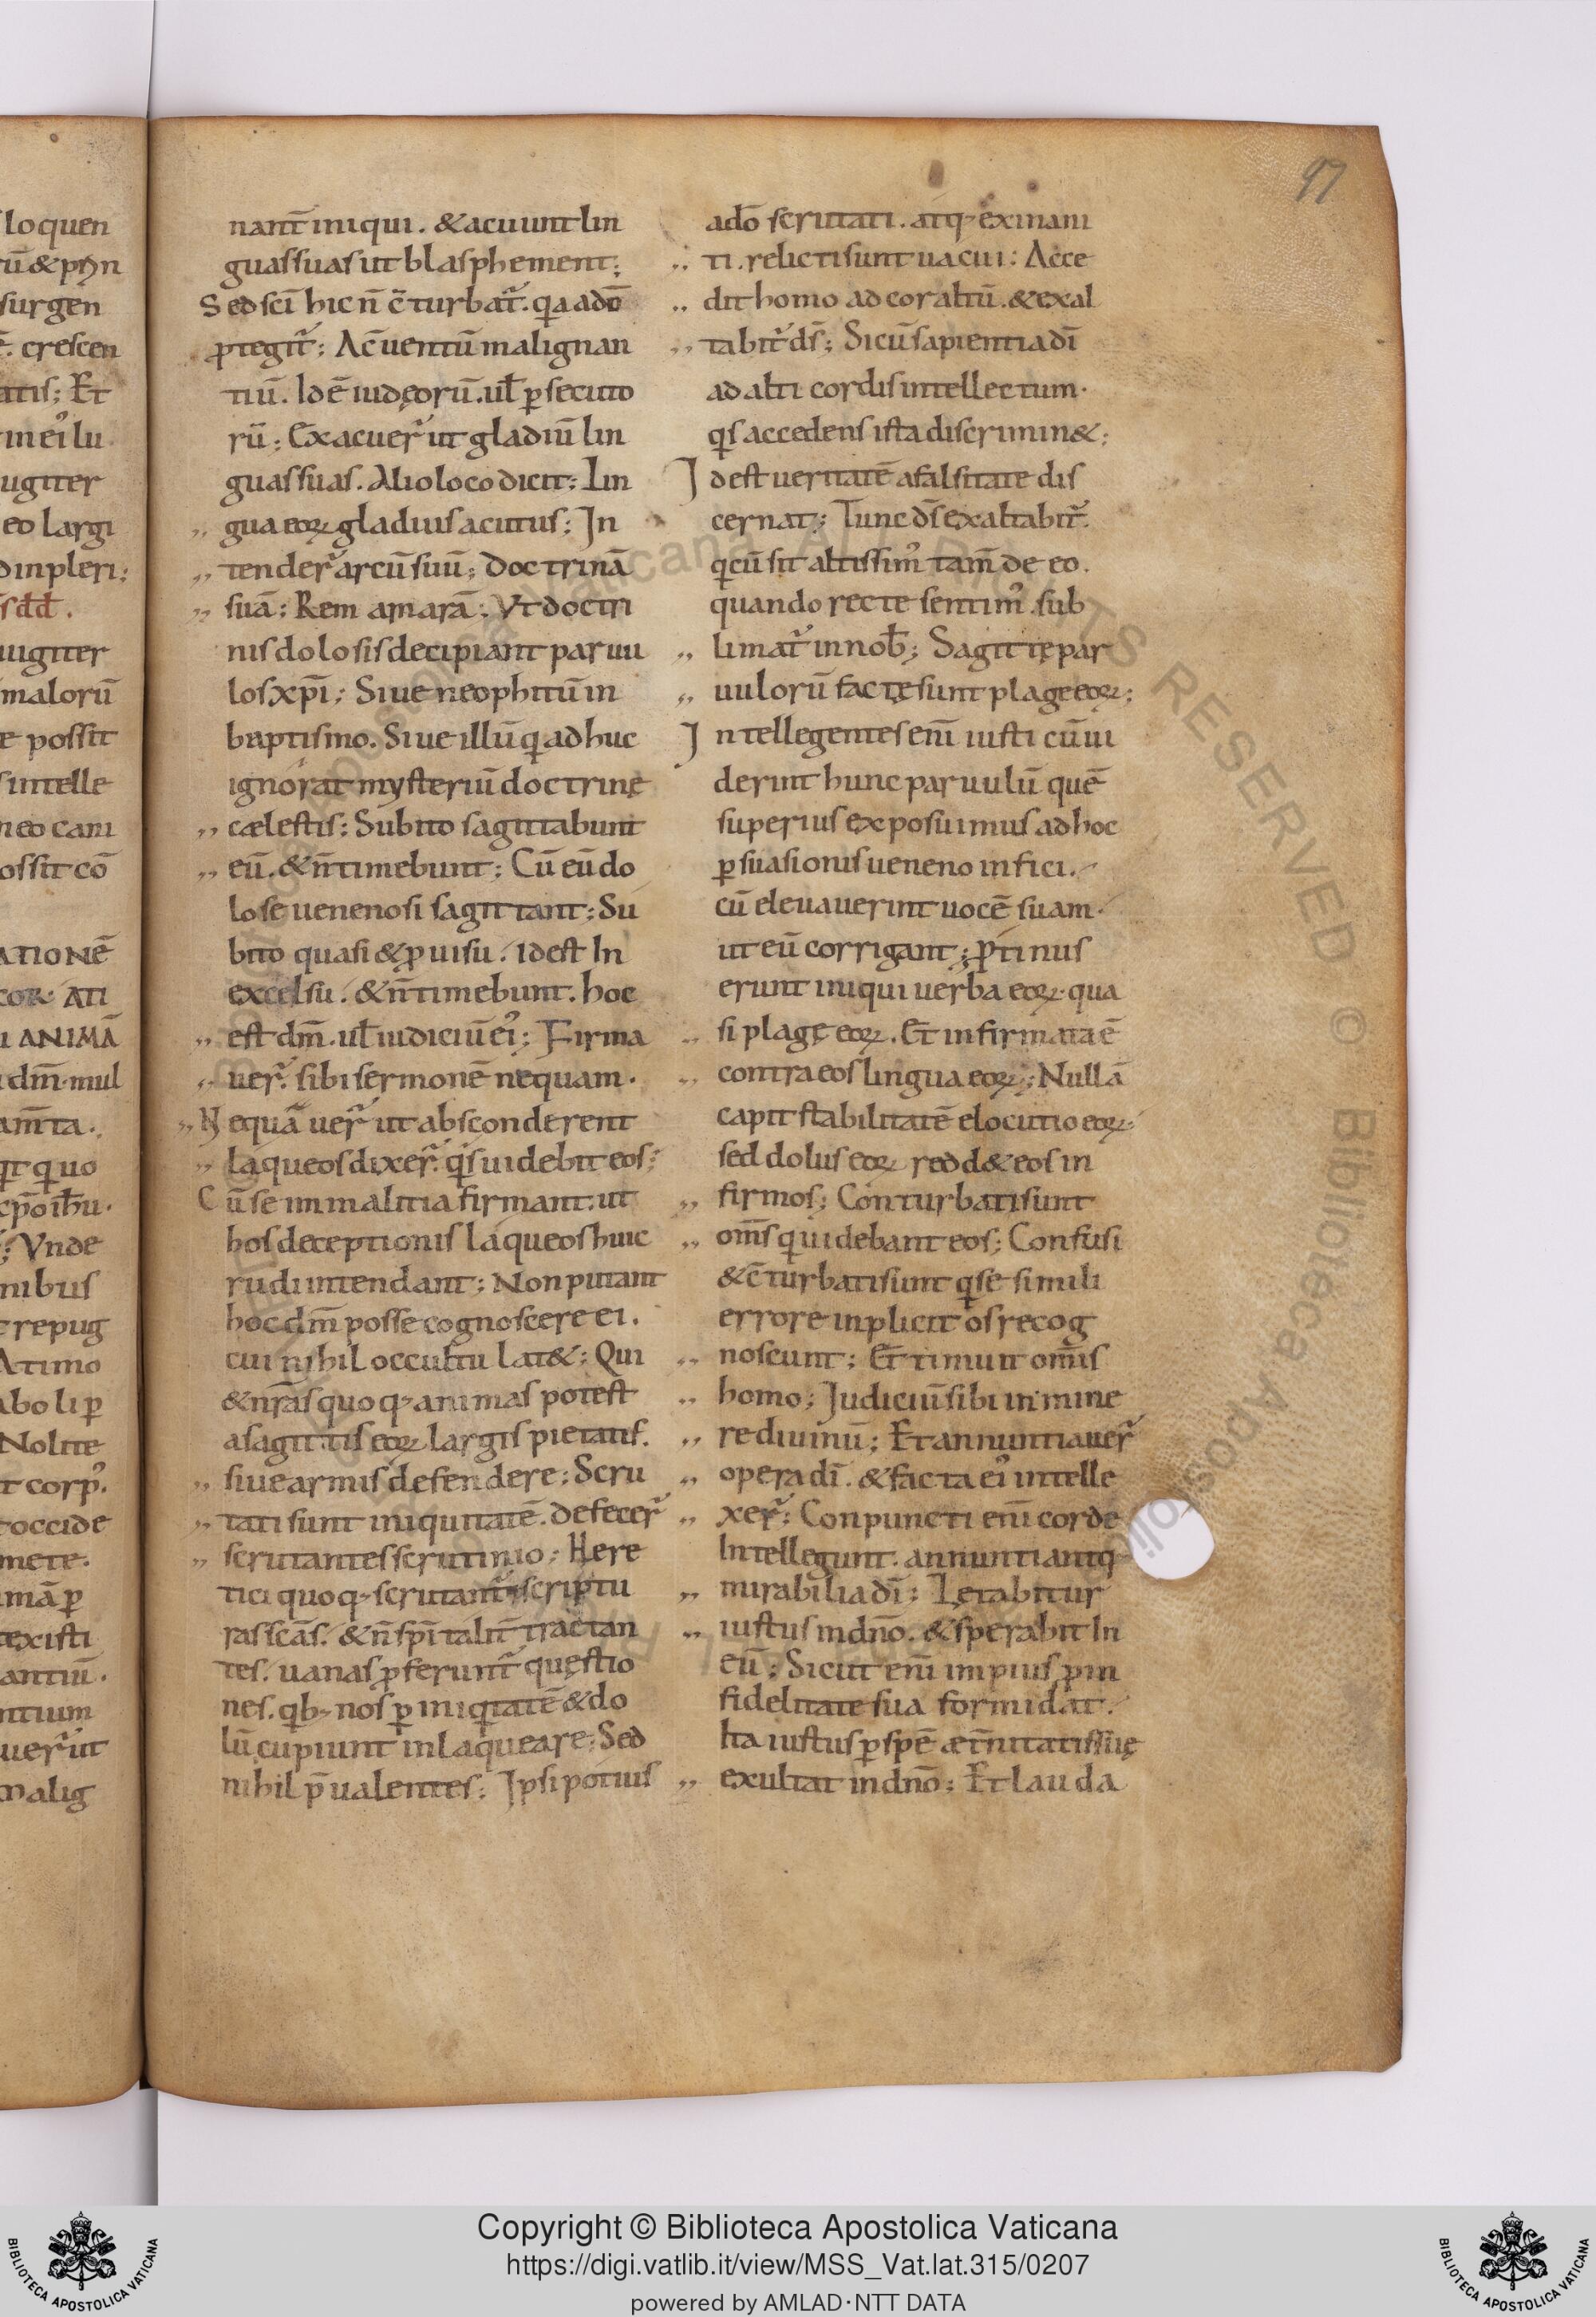 loquen
rū&pħn
surgen
ē. crescen
atis; Et
in ei᾽ lu
iugiter
eo largi
dinpleri;
s dđ.
iugiter
malorū
e possit
s intelle
neo cani
ossit cō
ATIONĒ
COR. ATI
ANIMĀ
dm̄. mul
am̄ta.
qt quo
cp̄o ih̄u.
; Vnde
nibus
repug
Atimo
boli p̲
Nolite
t corp᾽.
occide
mete.
imā p̲
existi
antiū.
ntium
uer̃ ut
malig
97
nant̄ iniqui. & acuunt lin
guas suas ut blasphement;
Sed sc̄i hic n̄ c̄turbat̃. qa a dō
ꝓtegit̃; A c̄uentū malignan
tiū. Id ē iudęorū. ul̄ p̲secuto
rū; Exacuer̃ ut gladiū lin
guas suas. Alio loco dicit; Lin
„ gua eoꝝ gladius acutus; In
„ tender̃ arcū suū; Doctrinā
„ suā; Rem amarā; Vt doctri
nis dolosis decipiant paruu
los xp̄i; Siue neophitū in
baptismo. Siue illū q adhuc
ignorat mysteriū doctrinę
„ cælestis; Subito sagittabunt
„ eū. & n̄ timebunt; Cū eū do
lose uenenosi sagittant; Su
bito quasi & ꝓuisu. Id est In
excelsu. & n̄ timebunt. hoc
„ est dm̄. ul̄ iudiciū ei᾽; Firma
„ uer̃. sibi sermonē nequam.
„ Nequā uer̃ ut absconderent
„ laqueos dixer̃. qs uidebit eos;
Cū se in malitia firmant. ut
hos deceptionis laqueos huic
rudi intendant; Non putant
hoc dm̄ posse cognoscere ei.
cui nihil occultu lat&; Qui
& nr̄as quoq; animas potest
a sagittis eoꝝ largis pietatis.
„ siue armis defendere; Scru
„ tati sunt iniquitatē. defecer̃
„ scrutantes scrutinio; Here
tici quoq; scrutant̃ scriptu
ras sc̄as. & n̄ sp̄italit̃ tractan
tes. uanas ꝓferunt̃ quęstio
nes. qb; nos p̲ iniqtatē & do
lū cupiunt inlaqueare; Sed
nihil p̄ualentes; Ipsi potius
a dō scrutati. atq; exinani
„ ti. relicti sunt uacui; Acce
„ dit homo ad cor altū. & exal
„ tabit̃ ds̄; Si cū sapientia dī
ad alti cordis intellectum.
qs accedens ista discrimin&;
Id est ueritatē a falsitate dis
cernat; Tunc ds̄ exaltabit̃.
q cū sit altissim᾽ tam̄ de eo.
quando recte sentim᾽. sub
„ limat̃ in nob̄; Sagittę par
„ uulorū factę sunt plage eoꝝ;
Intellegentes enī iusti cū ui
derint hunc paruulū quē
superius exposuimus ad hoc
p̲suasionis ueneno infici.
cū eleuauerint uocē suam.
ut eū corrigant; ꝓtinus
erunt iniqui uerba eoꝝ. qua
„ si plagę eoꝝ. Et infirmata ē
„ contra eos lingua eoꝝ; Nullā
capit stabilitatē elocutio eoꝝ.
sed dolus eoꝝ redd& eos in
„ firmos; Conturbati sunt
„ om̄s q uidebant eos; Confusi
& c̄turbati sunt q se simili
errore inplicitos recog
„ noscunt; Et timuit om̄is
„ homo; Iudiciū sibi inmine
„ re diuinū; Et annuntiauer̃
„ opera dī. & facta ei᾽ intelle
„ xer̃; Conpuncti enī corde
Intellegunt. annuntiantq;
„ mirabilia dī; Lętabitur
„ iustus in dn̄o. & sperabit In
eū; Sicut enī impius p̲ in
fidelitate sua formidat.
Ita iustus p̲ spē æt̄nitatis suę
„ exultat in dn̄o; Et lauda
Copyright © Biblioteca Apostolica Vaticana
https://digi.vatlib.it/view/MSS_Vat.lat.315/0207
powered by AMLAD·NTT DATA
BIBLIOTECA APOSTOLICA VATICANA
BIBLIOTECA APOSTOLICA VATICANA